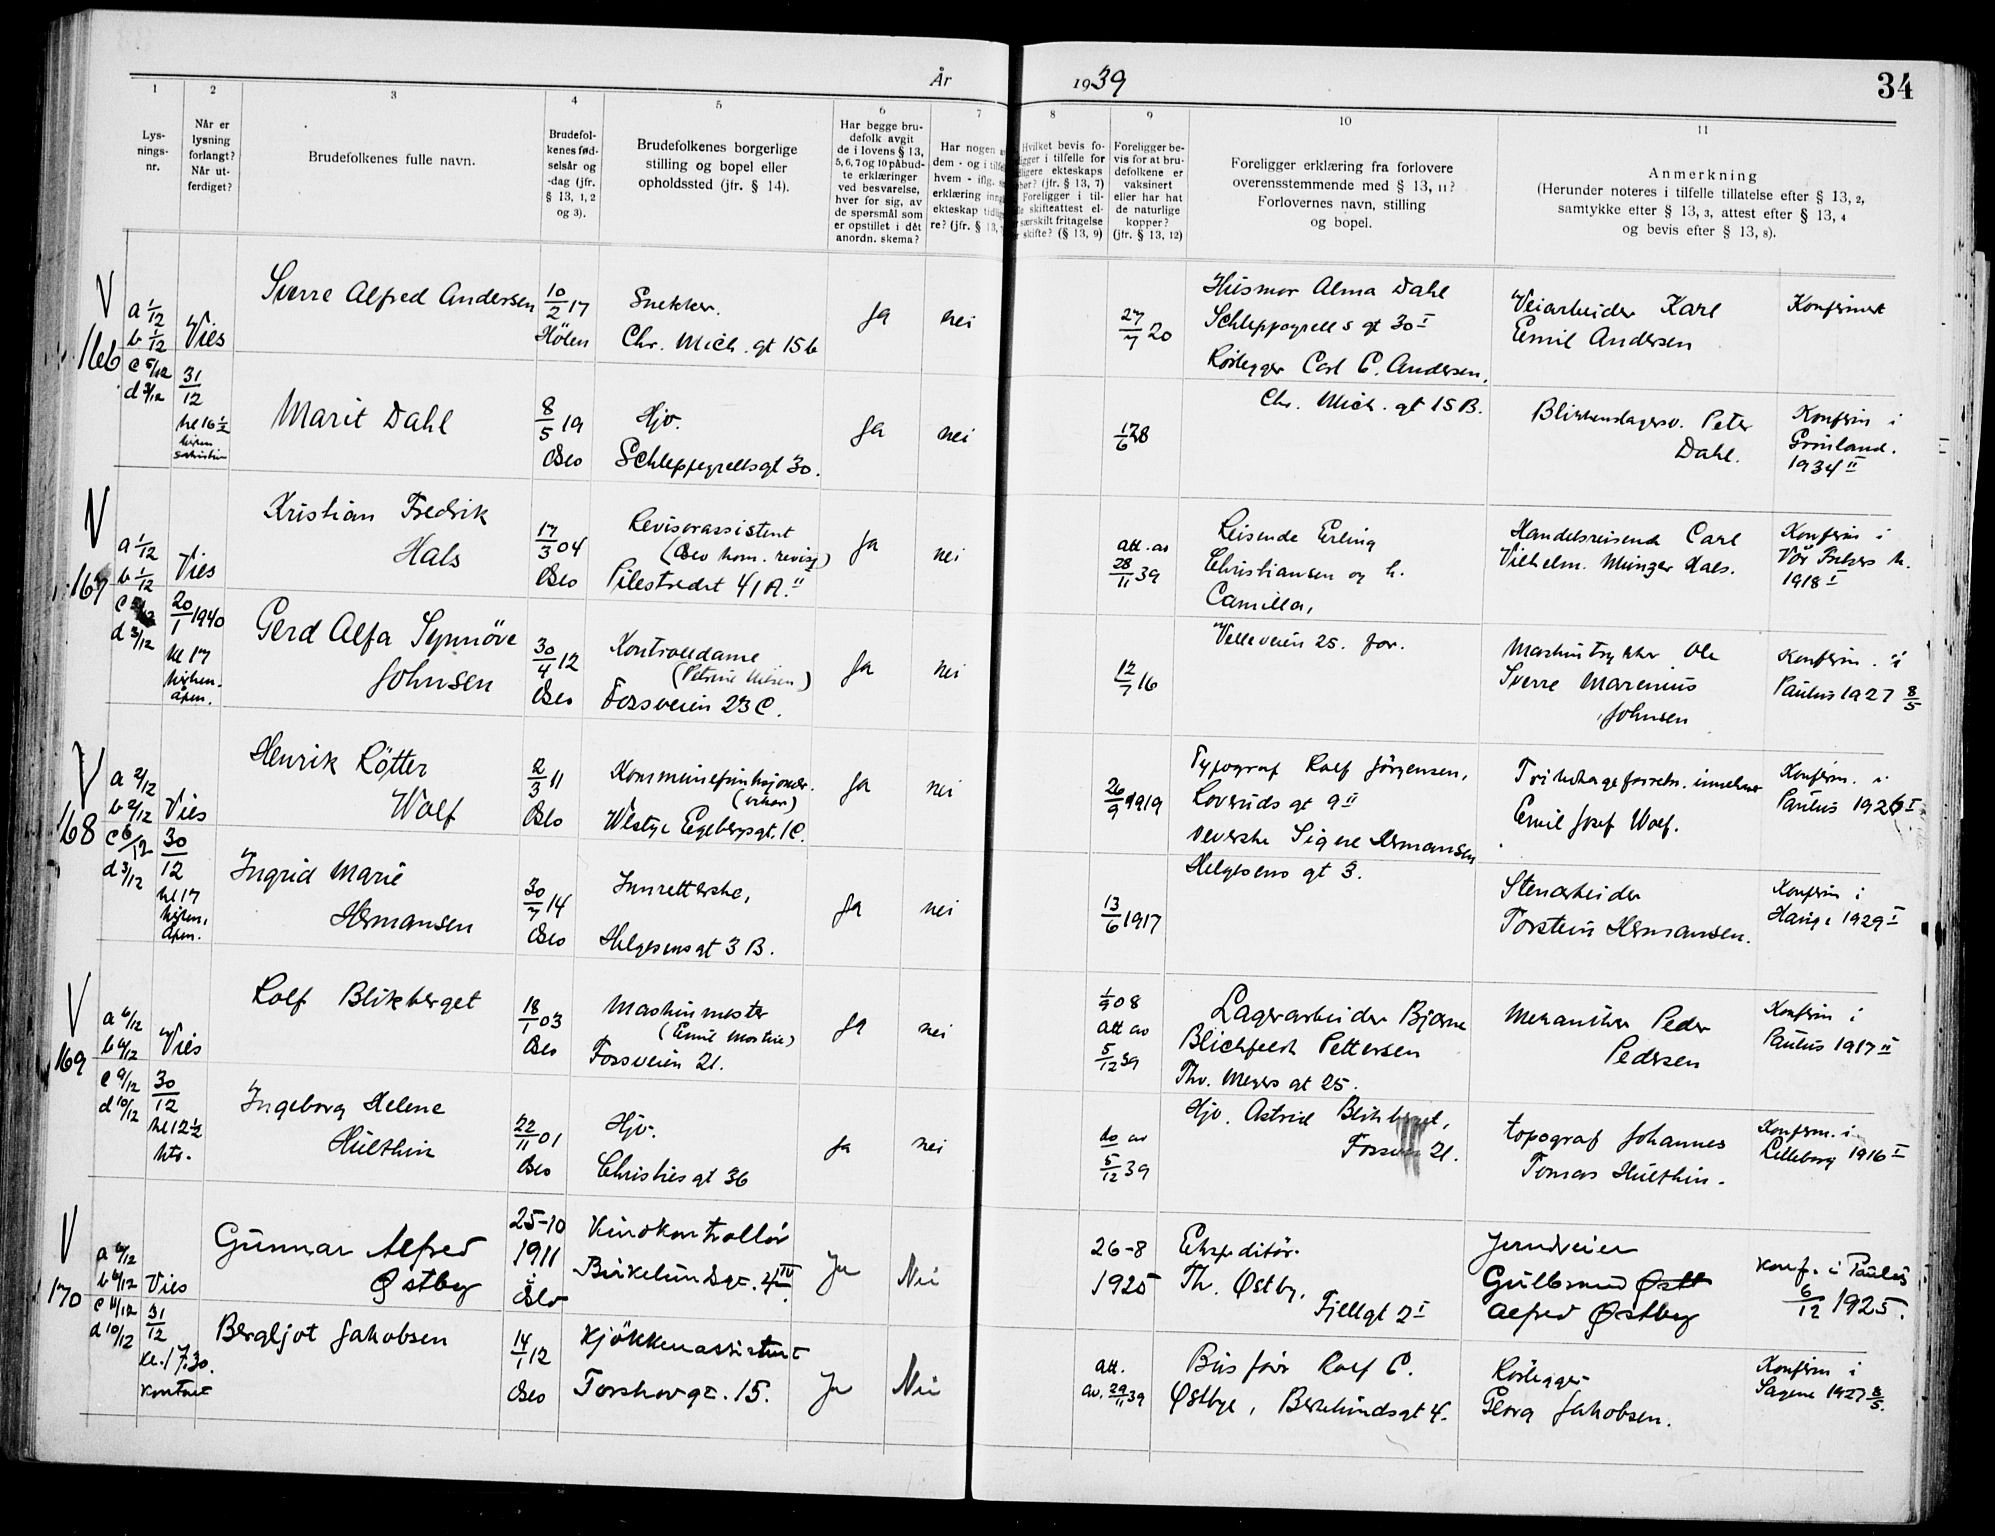 År
1939
34
1
2
3
4
5
6
7
8
9
10
11
Lys-
nings-
nr.
Når er
lysning
forlangt?
Når ut-
ferdiget?
Brudefolkenes fulle navn.
Brudefol-
kenes fød-
selsår og
-dag (jfr.
§ 13, 1, 2
og 3).
Brudefolkenes borgerlige
stilling og bopel eller
opholdssted (jfr. § 14).
Har begge bru-
defolk avgit
de i lovens § 13,
5, 6, 7 og 10 påbud-
te erklæringer
ved besvarelse,
hver for sig, av
de spørsmål som
er opstillet i dét
anordn. skema?
Har nogen
dem - og i
hvem - iflg.
erklæring
ekteskap
re? (jfr. § 13,
Hvilket bevis fo-
i tilfelle for
ekteskaps
(jfr. § 13, 7)
Foreligger i til-
skifteattest el-
særskilt fritagelse
skifte? (§ 13, 9)
Foreligger be-
vis for at bru-
defolkene er
vaksinert
eller har hat
de naturlige
kopper?
(jfr. § 13, 12)
Foreligger erklæring fra forlovere
overensstemmende med § 13, 11?
Forlovernes navn, stilling
og bopel.
Anmerkning
(Herunder noteres i tilfelle tillatelse efter § 13, 2,
samtykke efter § 13, 3, attest efter § 13, 4
og bevis efter § 13, 8).
V
166
a 1/12
b 1/12
c 5/12
d 3/12
Vies
31/12
kl 16 1/2
Sverre Alfred Andersen
10/2 17
Hölen
Snekker.
Chr. Mich. gt 15 b
Ja
nei
27/7 20
Husmor Alma Dahl
Schleppegrells gt 30 I
Rörlegger Carl C. Andersen,
Chr. Mich. gt 15 B.
Veiarbeider Karl
Emil Andersen
Konfirmert
Marit Dahl
8/5 19
Oslo
Hjv.
Schleppegrellsgt 30.
Ja
nei
Blikkenslagersv. Peter
Dahl.
Konfirm i
Grönland.
1934 II
V
167
a 1/12
b 1/12
d 3/12
Vies
20/1 1940
kl 17
kirken.
åpen.
Kristian Fredrik
Hals
17/3 04
Oslo
Revisorassistent
(Oslo kom. revisj)
Pilestredet 41 A. II
Ja
nei
att. av
28/11 39
Reisende Erling
Christiansen og h.
Camilla,
Velleveien 25. for.
Handelsreisende Carl
Vilhelm Munger Hals.
Konfirm i
Vår Frelsers k.
1918 I
Gerd Alfa Synnöve
Johnsen
30/4 12
Oslo
Kontrolldame
(Petrine Nilsen)
Fossveien 23 C.
Ja
nei
12/7 16
Maskintrykker Ole
Sverre Marenius
Johnsen
Konfirm. i
Paulus 1927 8/5
V
168
a 2/12
b 2/12
c 6/12
d 3/12
Vies
30/12
kl 17
kirken,
åpen.
Henrik Røtter
Wolf
2/3 11
Oslo
Kommunefunksjonær.
(vikar)
Westye Egebergsgt. 1C.
Ja
nei
26/9 1919
Typograf Rolf Jörgensen,
Loveruds gt 9 II
veverske Signe Hermansen
Helgesens gt 3.
Emil Josef Wolf.
Konfirm. i
Paulus 1926 I
Ingrid Marie
Hermansen
30/7 14
Oslo
Innretterske,
Helgesensgt 3 B.
Ja
nei
13/6 1917
Stenarbeider
Torstein Hermansen.
Konfirm i
Hauge 1929 I
V
169
a 6/12
b 6/12
c 9/12
d 10/12
Vies
30/12
kl 12 1/2
ktr.
Rolf Blikberget
18/1 03
Oslo
Maskinmester
(Emil Mostue)
Fossveien 21.
Ja
nei
1/9 08
att av
5/12 39
Lagerarbeider Bjarne
Blichfeldt Pettersen
Thv. Meyers gt 25.
Hjv. Astrid Blikberget,
21.
Mekaniker Peder
Pedersen
Konfirm i
Paulus 1917 II
Ingeborg Helene
Hulthin
22/11 01
Oslo
Hjv.
Christies gt 36
Ja
nei
do av
5/12 39
topograf Johannes
Tomas Hulthin.
Konfirm. i
Lilleborg 1916 I
V
170
a 6/12
b 6/12
c 11/12
d 10/12
Vies
31/12
kl. 17.30.
kontoret
Gunnar Alfred
Østby
25-10
1911
i
Oslo
Kinokontrollör
Birkelunds gt. 4 IV.
Ja
Nei
26-8
1925
Ekspeditör.
Th. Østby,
Fjellgt 2 I
Jernveier
Gulbrand Østb
Alfred Østby
Konf. i Paulus
6/12 1925.
Bergljot Jakobsen
14/1 12
Oslo
Kjökkenassistent
Torshovgt. 15.
Ja
Nei
att.
av. 29/11 39
Bus före Rolf C.
Østbye, Birkelundsgt 4.
Rörlegger
Georg Jakobsen.
Konfirm i
Sagene 1927 8/5.